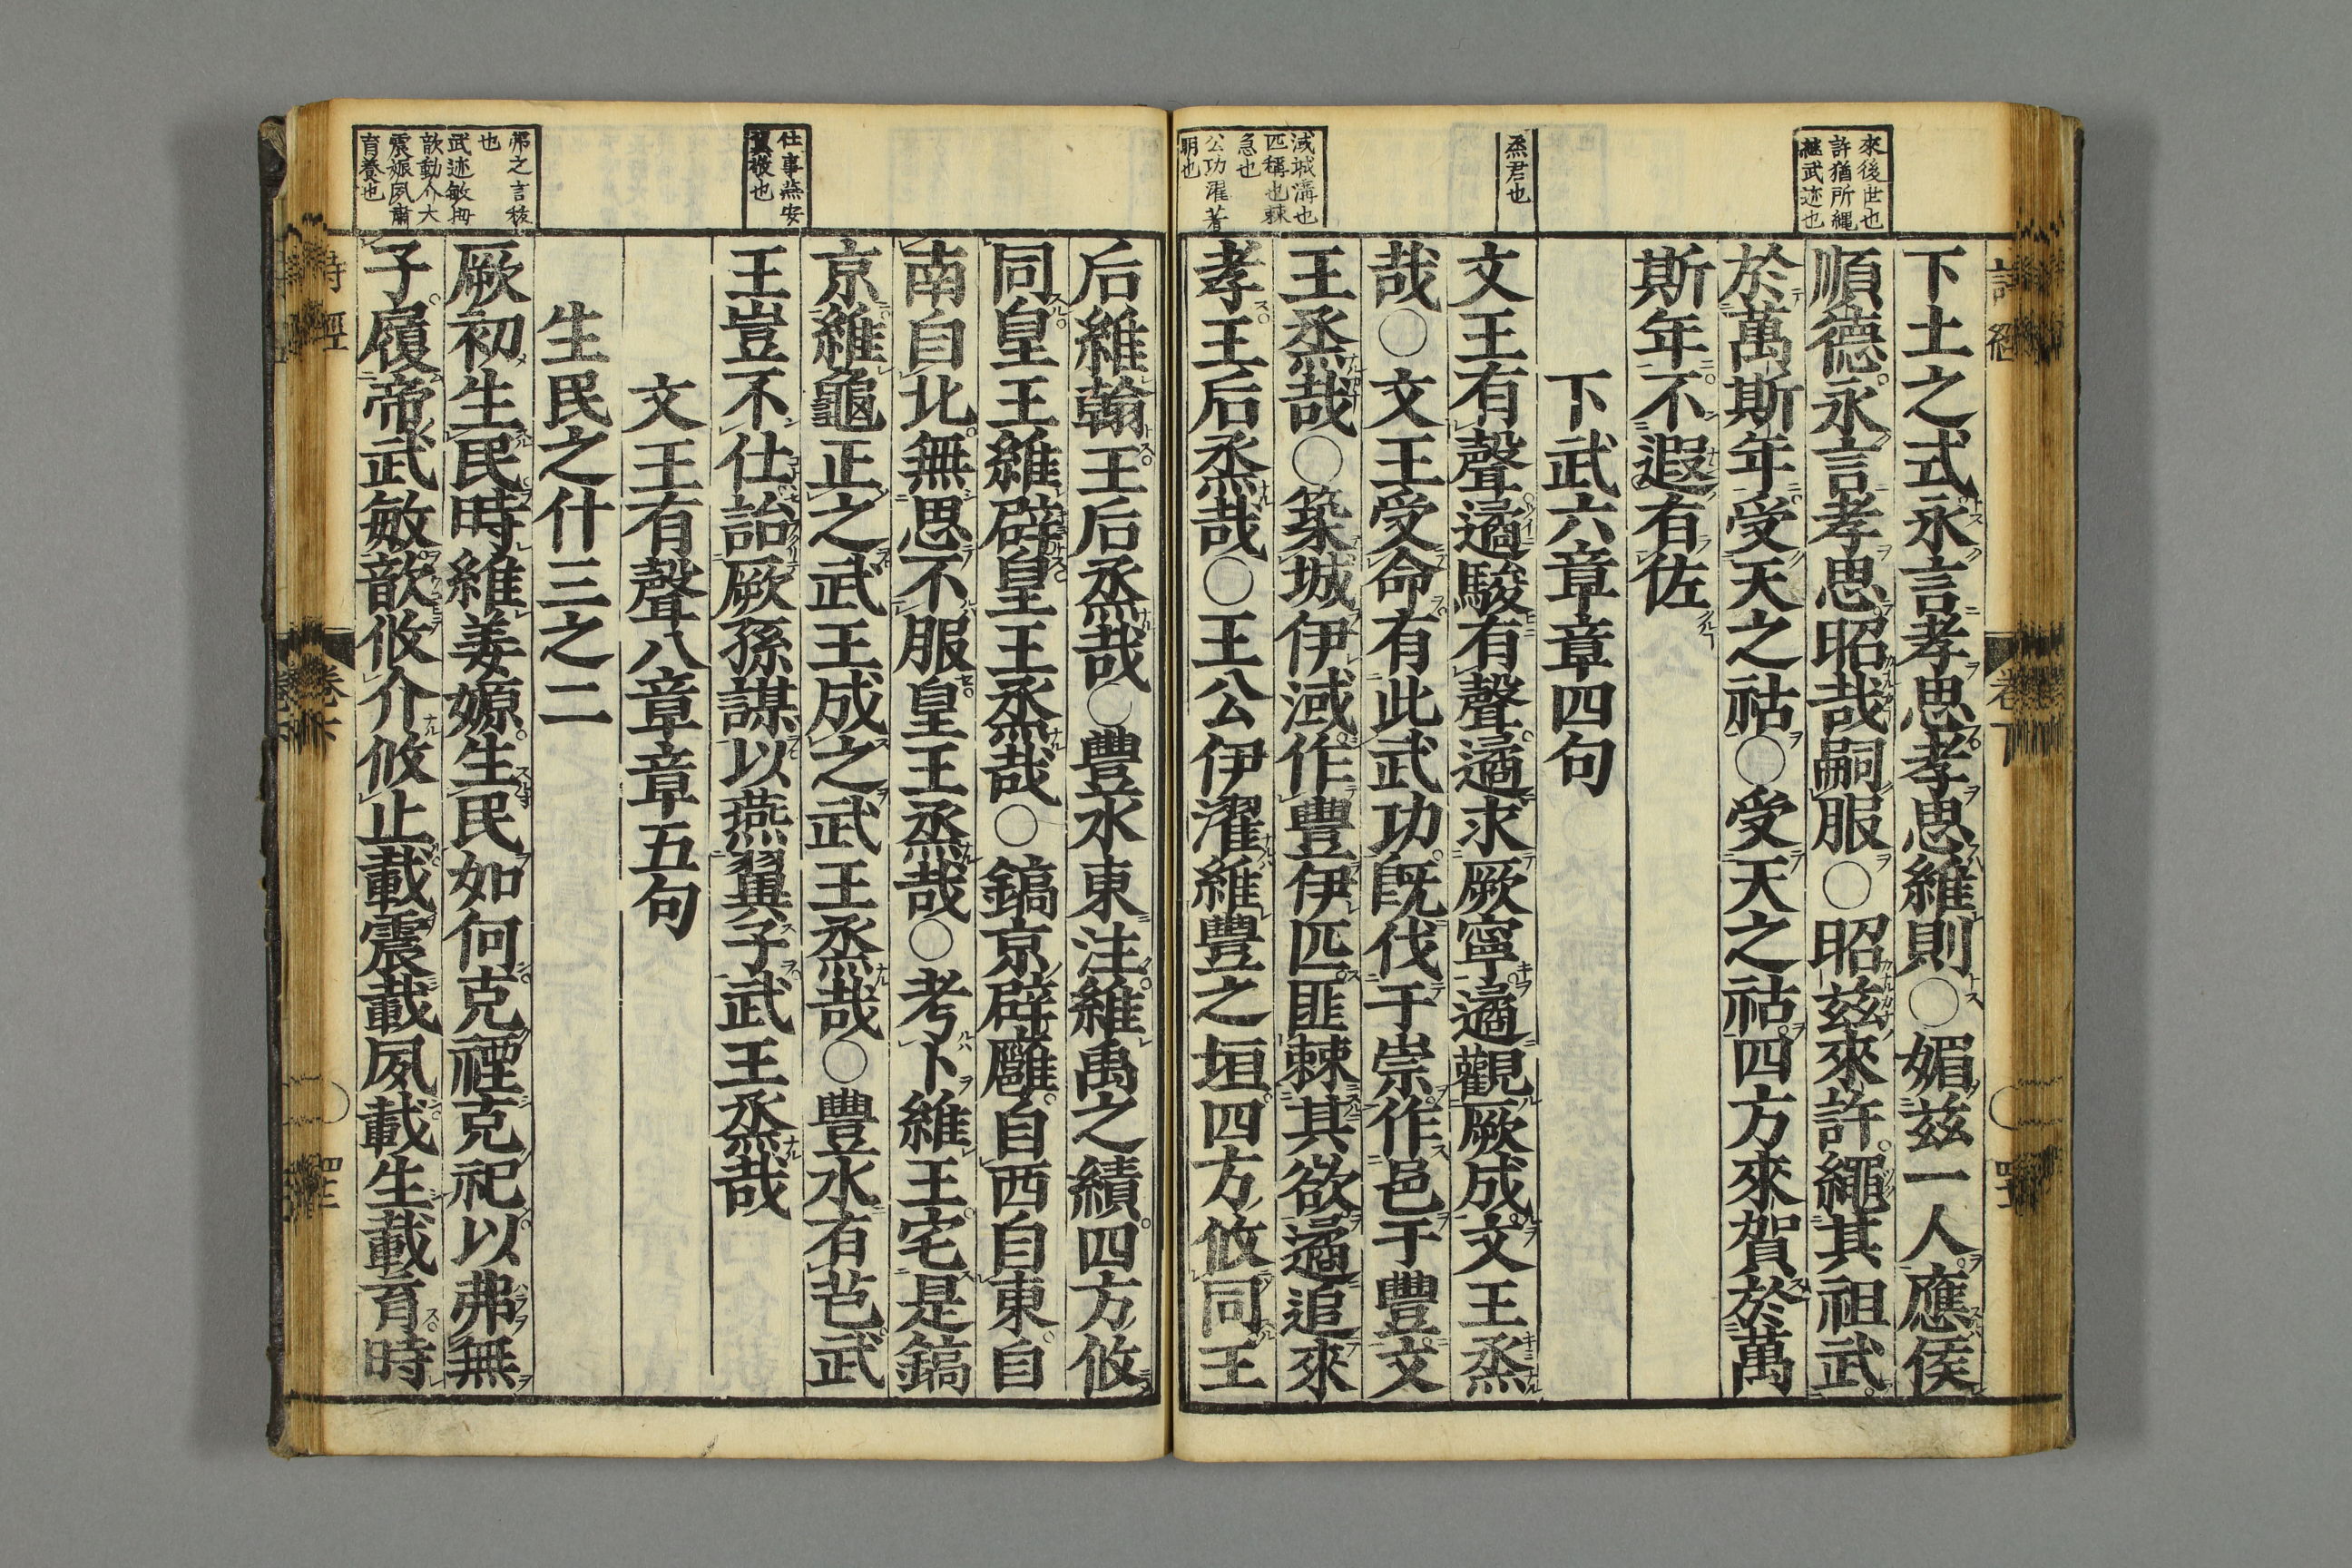 來後世也
許猶所繩
繼武迹也
下土之式永言孝思孝思維則○媚兹一人應侯
順德永言孝思昭哉嗣服○昭兹來許繩其祖武
於萬斯年受天之祜○受天之祜四方來賀於萬
斯年不遐有佐
下武六章章四句
烝君也
文王有聲遹駿有聲遹求厥寧遹觀厥成文王烝
哉○文王受命有此武功既伐于崇作邑于豐文
淢城溝也
匹稱也棘
急也
公功濯著
明也
王烝哉○築城伊淢作豐伊匹匪棘其欲遹追來
孝王后烝哉○王公伊濯維豐之垣四方攸同王
后維翰王后烝哉○豐水東注維禹之績四方攸
同皇王維辟皇王烝哉○鎬京辟廱自西自東自
南自北無思不服皇王烝哉○考卜維王宅是鎬
京維龜正之武王成之武王烝哉○豐水有芑武
仕事燕安
翼敬也
王豈不仕詒厥孫謀以燕翼子武王烝哉
文王有聲八章章五句
生民之什三之二
弗之言祓
也
武迹敏拇
歆動介大
震娠夙肅
育養也
厥初生民時維姜嫄生民如何克禋克祀以弗無
子履帝武敏歆攸介攸止載震載夙載生載育時